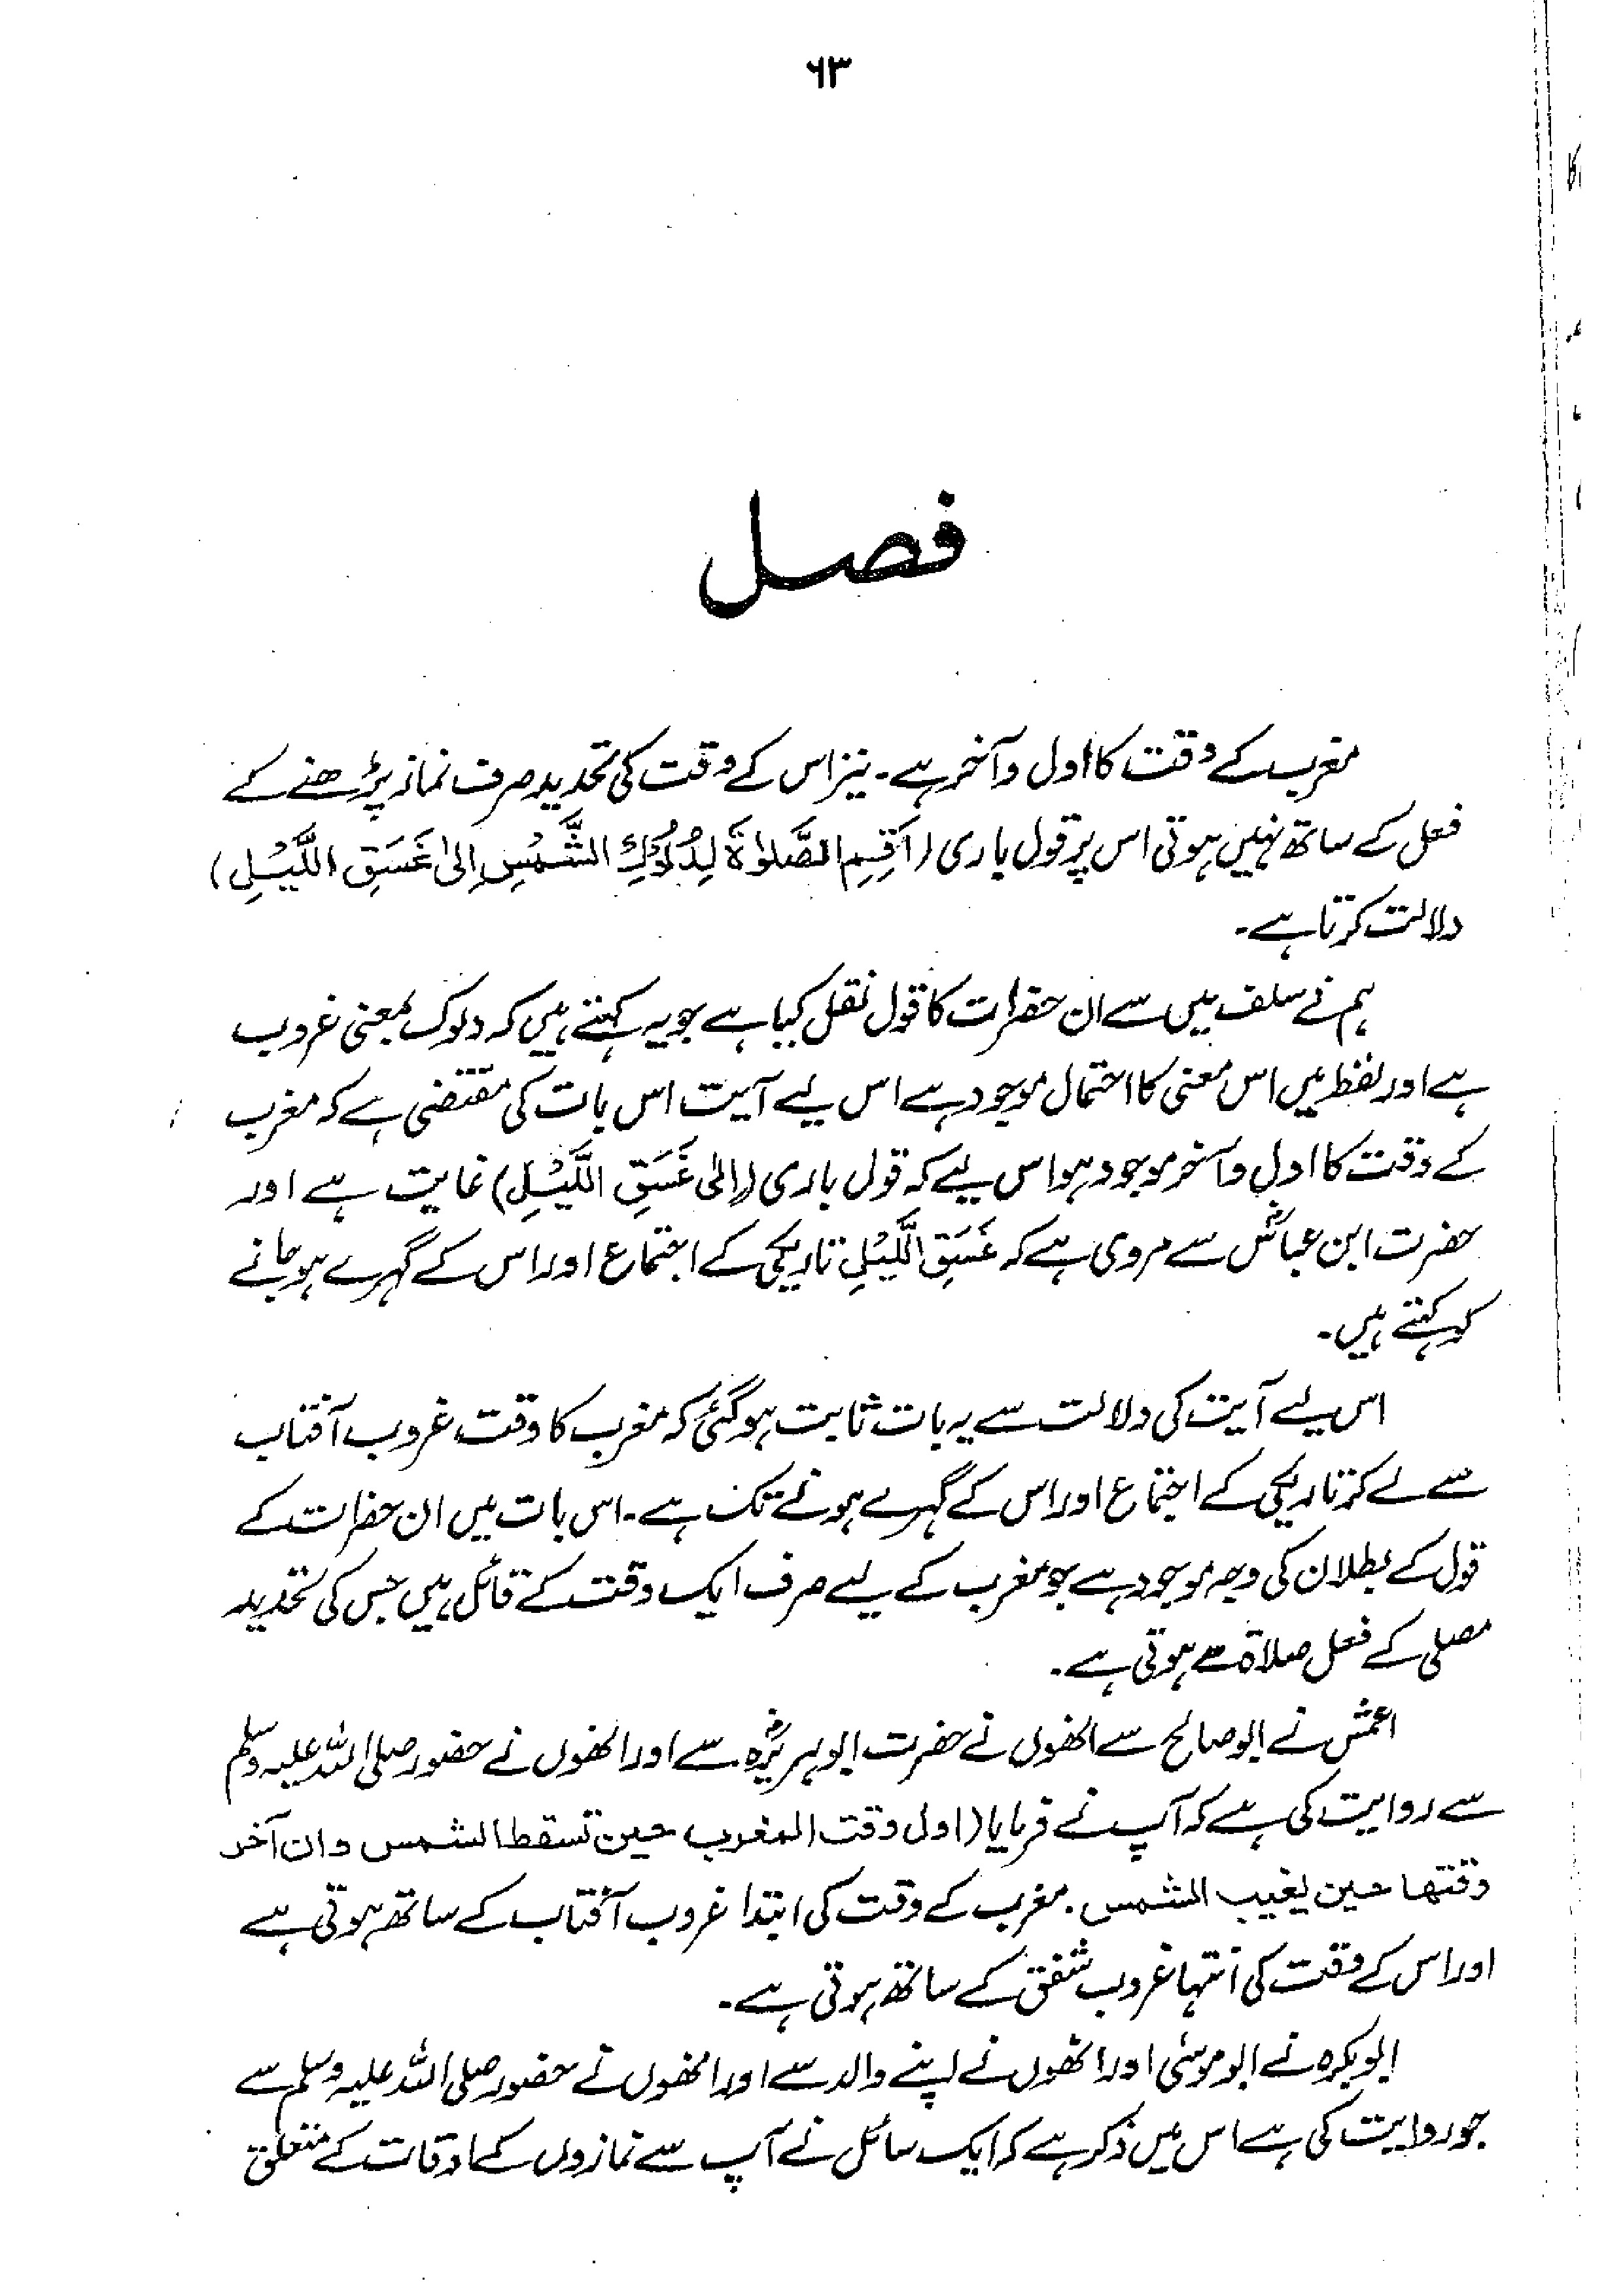 ۶۳
فصل
مغرب کے وقت کا اول و آخر ہے۔ نیز اس کے وقت کی تحدید صرف نماز پڑھنے کے
فعل کے ساتھ نہیں ہوتی اس پر قول باری (اَقِمِ الصَّلٰوةَ لِدُلُوْكِ الشَّمْسِ اِلیٰ غَسَقِ اللَّيْلِ)
دلالت کرتا ہے۔
ہم نے سلف میں سے ان حضرات کا قول نقل کیا ہے جو یہ کہتے ہیں کہ دلوک بمعنی غروب
ہے اور لفظ میں اس معنی کا احتمال موجود ہے اس لیے آیت اس بات کی مقتضی ہے کہ مغرب
کے وقت کا اول و آخر موجود ہو اس لیے کہ قول باری (اِلیٰ غَسَقِ اللَّيْلِ) غایت ہے اور
حضرت ابن عباسؓ سے مروی ہے کہ غَسَقِ اللَّيْلِ تاریکی کے اجتماع اور اس کے گہرے ہو جانے
کو کہتے ہیں۔
اس لیے آیت کی دلالت سے یہ بات ثابت ہو گئی کہ مغرب کا وقت غروب آفتاب
سے لے کر تاریکی کے اجتماع اور اس کے گہرے ہونے تک ہے۔ اس بات میں ان حضرات کے
قول کے بطلان کی وجہ موجود ہے جو مغرب کے لیے صرف ایک وقت کے قائل ہیں جس کی تحدید
مصلی کے فعل صلاۃ سے ہوتی ہے۔
اعمش نے ابوصالح سے انھوں نے حضرت ابوہریرہؓ سے اور انھوں نے حضور صلی اللہ علیہ وسلم
سے روایت کی ہے کہ آپ نے فرمایا (اول وقت المغرب حین تسقط الشمس وان آخر
وقتها حین یغیب الشمس۔ مغرب کے وقت کی ابتدا غروب آفتاب کے ساتھ ہوتی ہے
اور اس کے وقت کی انتہا غروب شفق کے ساتھ ہوتی ہے۔
ابوبکرہ نے ابوموسٰی اور انھوں نے اپنے والد سے اور انھوں نے حضور صلی اللہ علیہ وسلم سے
جو روایت کی ہے اس میں ذکر ہے کہ ایک سائل نے آپ سے نمازوں کے اوقات کے متعلق